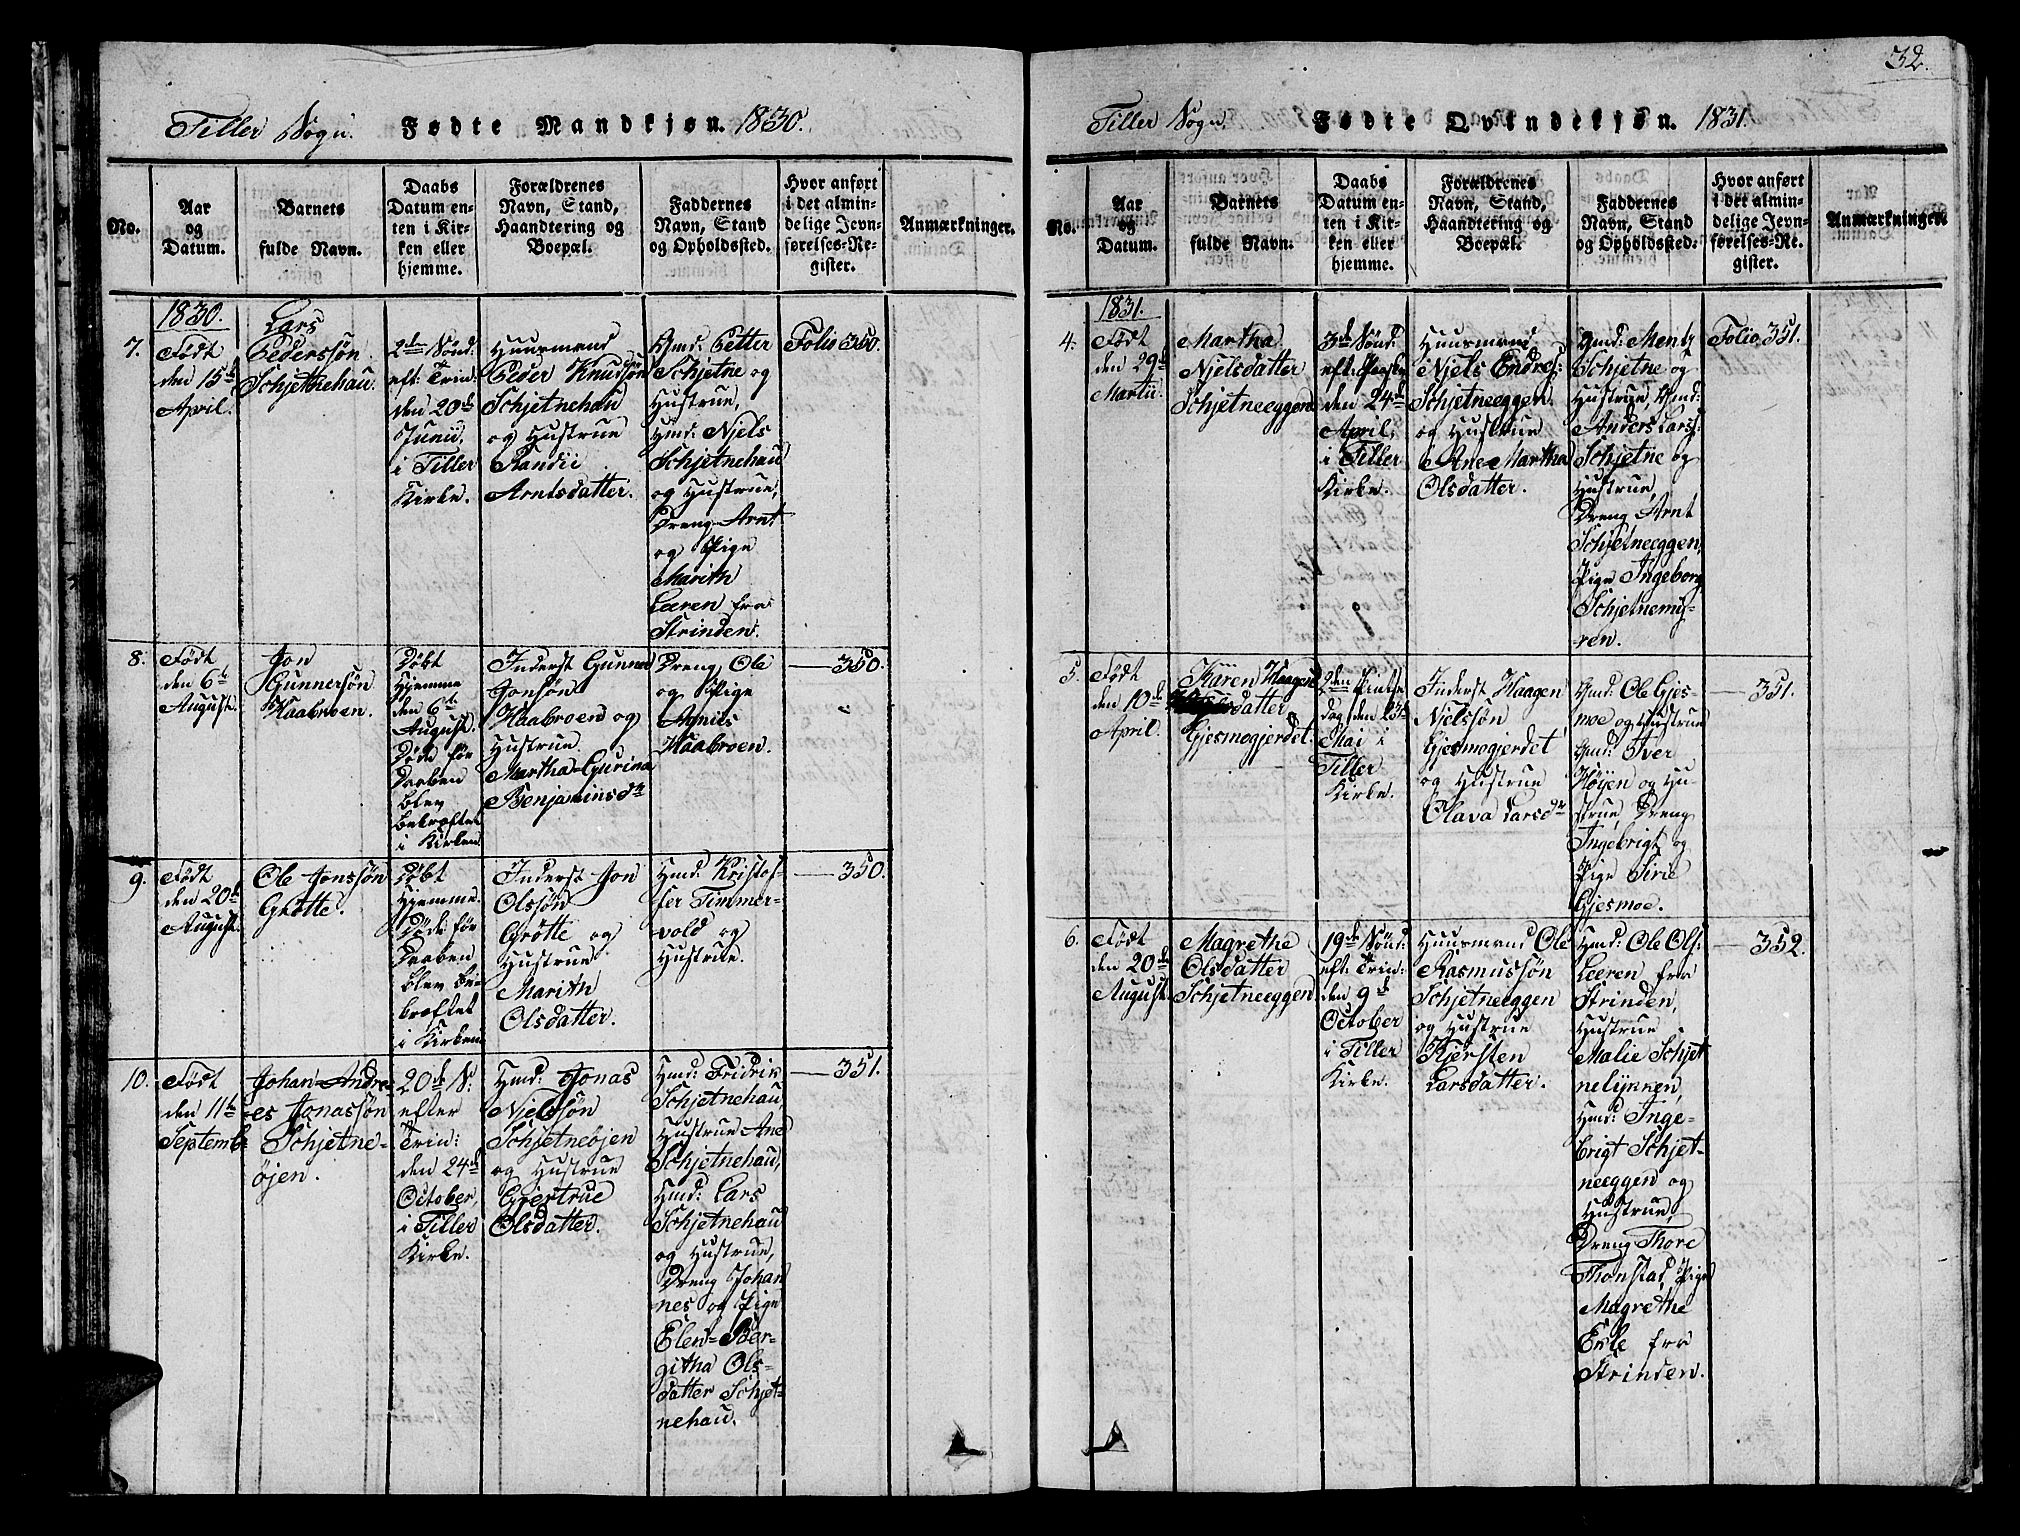 Tiller Sogn. Fødte Mandkjøn. 1830.
No.
Aar
og
Datum.
Barnets
fulde Navn.
Daabs
Datum en-
ten i Kir-
ken eller
hjemme.
Forældrenes
Navn, Stand,
Haandtering og
Boepæl.
Faddernes
Navn, Stand
og Opholdssted.
Hvor anført
i det almin-
delige Jevn-
førelses-Re-
gister.
Anmærkninger.
7.
1830.
Født
den 15de
April.
Lars
Pederssøn
Schjetnehau.
2den Sønd:
eft: Trin:
den 20de
Junii,
i Tiller
Kirke.
Huusmand
Peder Knudsøn
Schjetnehau
og Hustrue
Randii
Arntsdatter.
Gmd: Petter
Schjetne og
Hustrue,
Hmd: Njels
Schjetnehau
og Hustrue,
Dreng Arnt
og Pige
Marith
Leeren fra
Strinden.
Folio 350.
8.
Født
den 6te
August.
Jon
Gunnersøn
Kaabroen.
Døbt
Hjemme
den 6te
August.
Døde før
Daaben
blev
bekræftet
i Kirken.
Inderst Gunner
Jonsøn
Kaabroen og
Hustrue
Martha-Gurina
Benjaminsdr
Dreng Ole
og Pige
Agnis
Kaabroen.
350.
9.
Født
den 20de
August.
Ole Jonssøn
Grøtte.
Døbt
Hjemme.
Døde før
Daaben
blev be-
kræftet
i Kirken.
Inderst Jon
Olssøn
Grøtte og
Hustrue
Marith
Olsdatter.
Hmd: Kristof-
fer Timmer-
vold og
Hustrue.
350.
10.
Født
den 11te
Septemb:
Johan-Andre-
es Jonassøn
Schjetne-
øjen.
20de S:
efter
Trin:
den 24de
October,
i Tiller
Kirke.
Hmd: Jonas
Njelssøn
Schjetneøjen
og Hustrue
Gjertrue
Olsdatter.
Hmd: Fridrik
Schjetnehau,
Hustrue Ane
Schjetnehau,
Hmd: Lars
Schjetnehau
og Hustrue,
Dreng Johan
nes og Pige
Elen-Ber-
githa Ols-
datter Schjet-
nehau.
351.
32.
Tiller Sogn. Fødte Qvindekjøn. 1831.
No.
Aar
og
Datum.
Barnets
fulde Navn.
Daabs
Datum en-
ten i Kir-
ken eller
hjemme.
Forældrenes
Navn, Stand,
Haandtering og
Boepæl.
Faddernes
Navn, Stand
og Opholdssted.
Hvor anført
i det almin-
delige Jevn-
førelses-Re-
gister.
Anmærkninger.
4.
1831.
Født
den 29de
Martii.
Martha
Njelsdatter
Schjetneeggen
3die Sønd:
eft: Paaske
den 24de
April,
i Tiller
Kirke.
Huusmand
Njels Endres:
Schjetneeggen
og Hustrue
Ane Martha
Olsdatter.
Gmd: Mentz
Schjetne og
Hustrue, Gmd:
Anders Lars:
Schjetne og
Hustrue,
Dreng Arnt
Schjetneeggen,
Pige Ingeborg
Schjetnemy-
ren.
Folio 351.
5.
Født
den 10de
April.
Karen Haagens
datter
Gjesmogjerdet.
2den Pintse
dag den 23de
Mai i
Tiller
Kirke.
Inderst Haagen
Njelssøn
Gjesmogjerdet
og Hustrue
Olava Larsdr
Gmd: Ole Gjes-
moe og Hustrue
Gmd: Iver
Høyen og Hu-
strue, Dreng
Ingebrigt og
Pige Sirie
Gjesmoe.
351.
6.
Født
den 20de
August.
Magrethe
Olsdatter
Schjetneeggen
19de Sønd:
eft: Trin:
den 9de
October
i Tiller
Kirke.
Huusmand Ole
Rasmussøn
Schjetneeggen
og Hustrue
Kjersten
Larsdatter.
Hmd: Ole Ols:
Leeren fra
Strinden,
Hustrue
Malie Schjet
nelykken,
Hmd: Inge-
brigt Schjet-
neeggen og
Hustrue,
Dreng Thore
Thonstad, Pige
Magrethe
Evle fra
Strinden.
352.